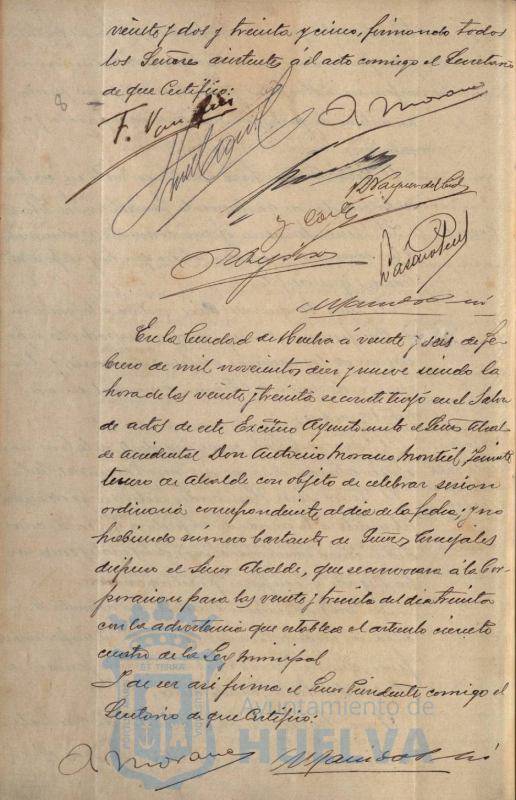 veinte y dos y treinta y cinco, firmando todos
los Señores asistentes á el acto conmigo el Secretario
de que Certifico:
8
F. Van
A Morano
En la Ciudad de Huelva á veinte y seis de Fe-
brero de mil novecientos diez y nueve siendo la
hora de las veinte y treinta se constituyó en el Salon
de actos de este Excmo Ayuntamiento el Señor Alcal-
de accidental Don Antonio Morano Montiel, Teniente
tercero de Alcalde con objeto de celebrar sesion
ordinaria correspondiente al dia de la fecha; y no
habiendo número bastante de Señores Concejales
dispuso el Señor Alcalde, que se convocara á la Cor-
poracion para las veinte y treinta del dia
con la advertencia que establece el articulo ciento
cuatro de la Ley Municipal
Y de ser asi firma el Señor Presidente conmigo el
Secretario de que Certifico:
A Morano
Ayuntamiento de
HUELVA